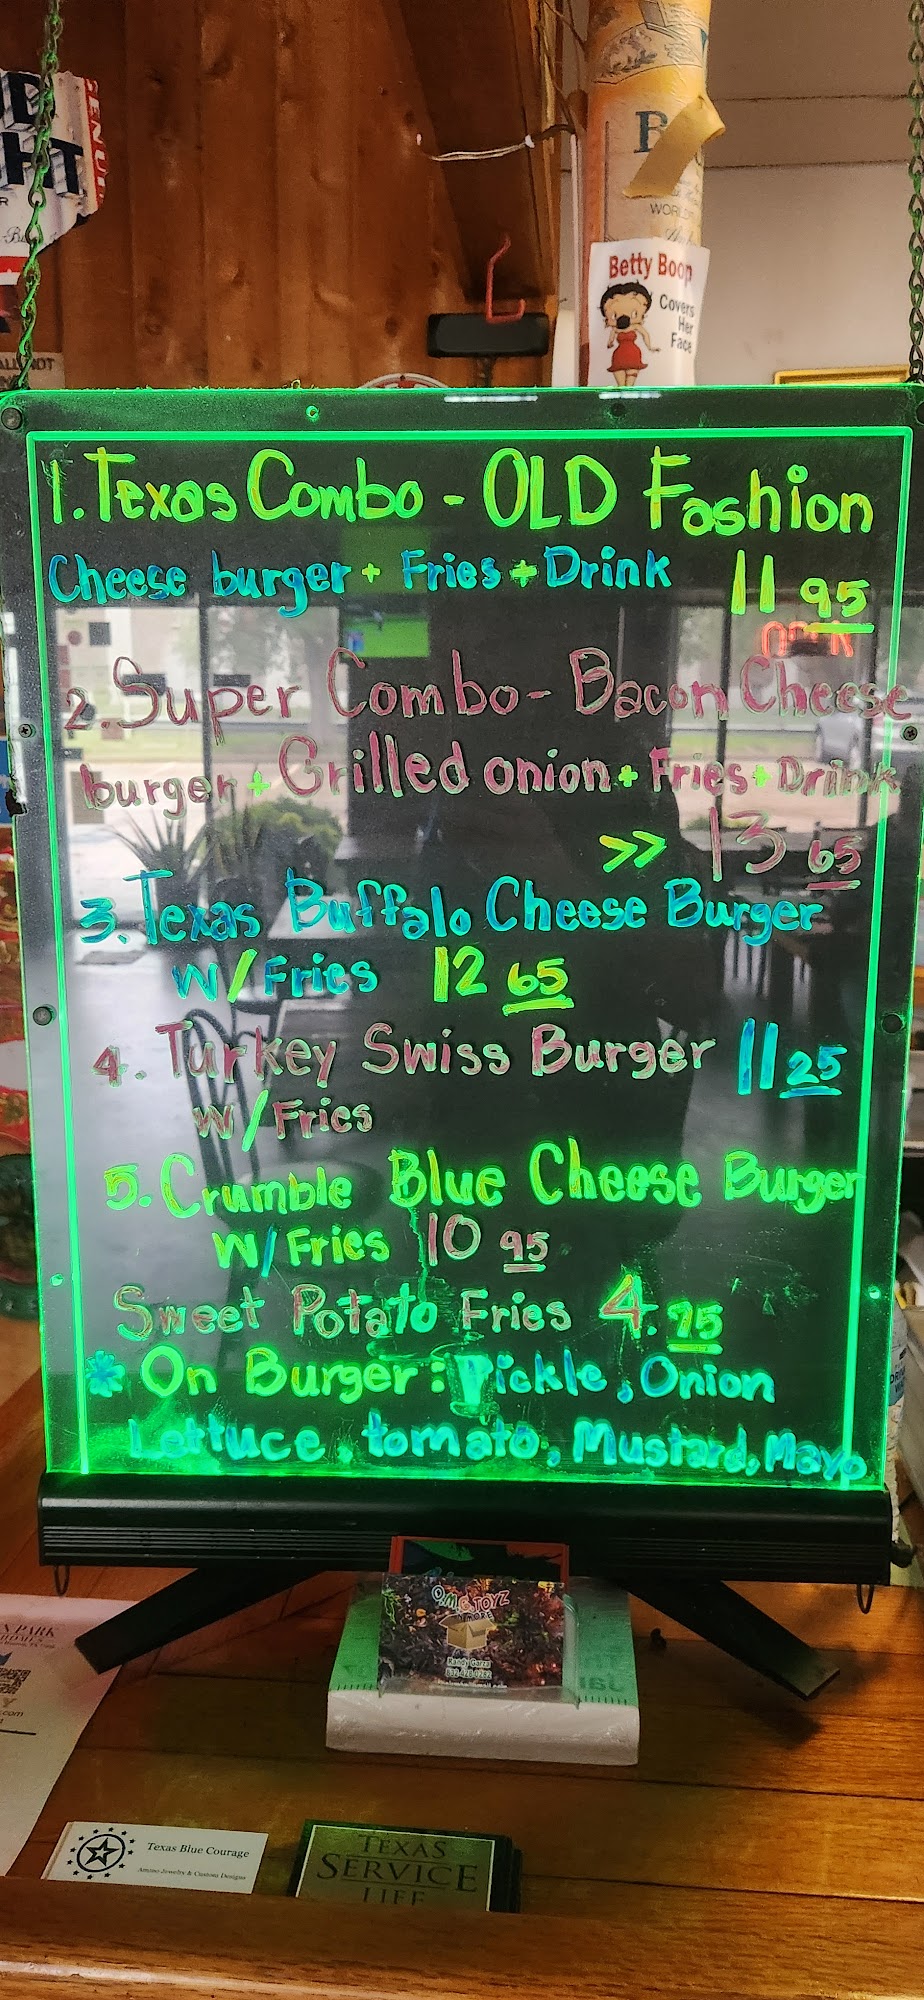 GHT
Betty Boop
Covers
Her
Face
WORLD
1. Texas Combo - OLD Fashion
Cheese burger + Fries + Drink 11 95
2. Super Combo - Bacon Cheese
burger + Grilled onion + Fries + Drink
>> 13 65
3. Texas Buffalo Cheese Burger
W/Fries 12 65
4. Turkey Swiss Burger 11 25
W/Fries
5. Crumble Blue Cheese Burger
W/Fries 10 95
Sweet Potato Fries 4.75
* On Burger: Pickle, Onion
Lettuce, tomato, Mustard, Mayo
O.M.G. TOYZ
N MORE
Randy Garza
PARK
Texas Blue Courage
Ammo Jewelry & Custom Designs
TEXAS
SERVICE
LIFE